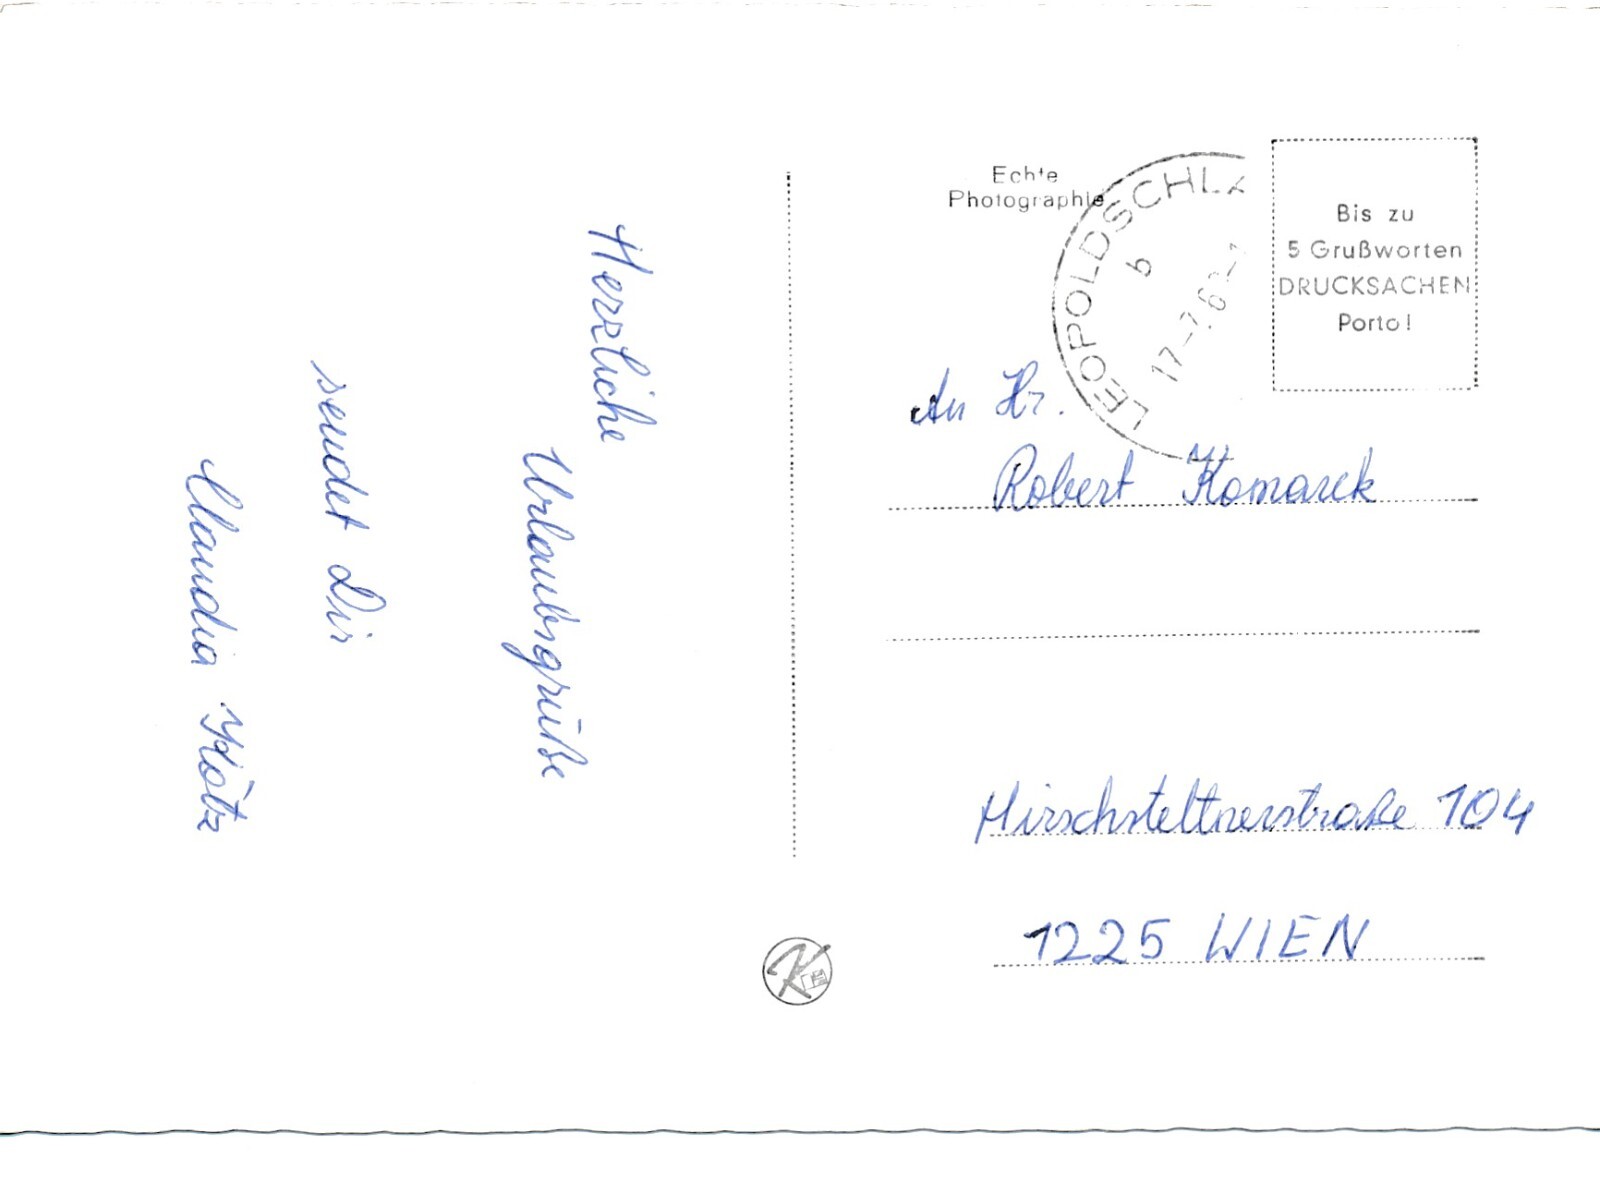 Herzliche
Urlaubsgrüße
sendet Dir
Claudia Kötz
Echte
Photographie
LEOPOLDSCHLA
b
17.-7.6
Bis zu
5 Grußworten
DRUCKSACHEN
Porto!
An Hr.
Robert Komarek
Hirschstettnerstraße 104
1225 WIEN
K